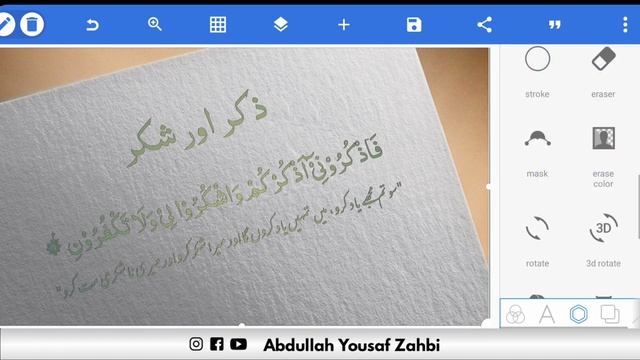 stroke
eraser
mask
erase
color
rotate
3D
3d rotate
ذکر اور شکر
فَاذْكُرُوْنِيْٓ اَذْكُرْكُمْ وَاشْكُرُوْا لِيْ وَلَا تَكْفُرُوْنِ
"سو تم مجھے یاد کرو، میں تمہیں یاد کروں گا اور میرا شکر کرو اور میری ناشکری مت کرو"
A
Abdullah Yousaf Zahbi